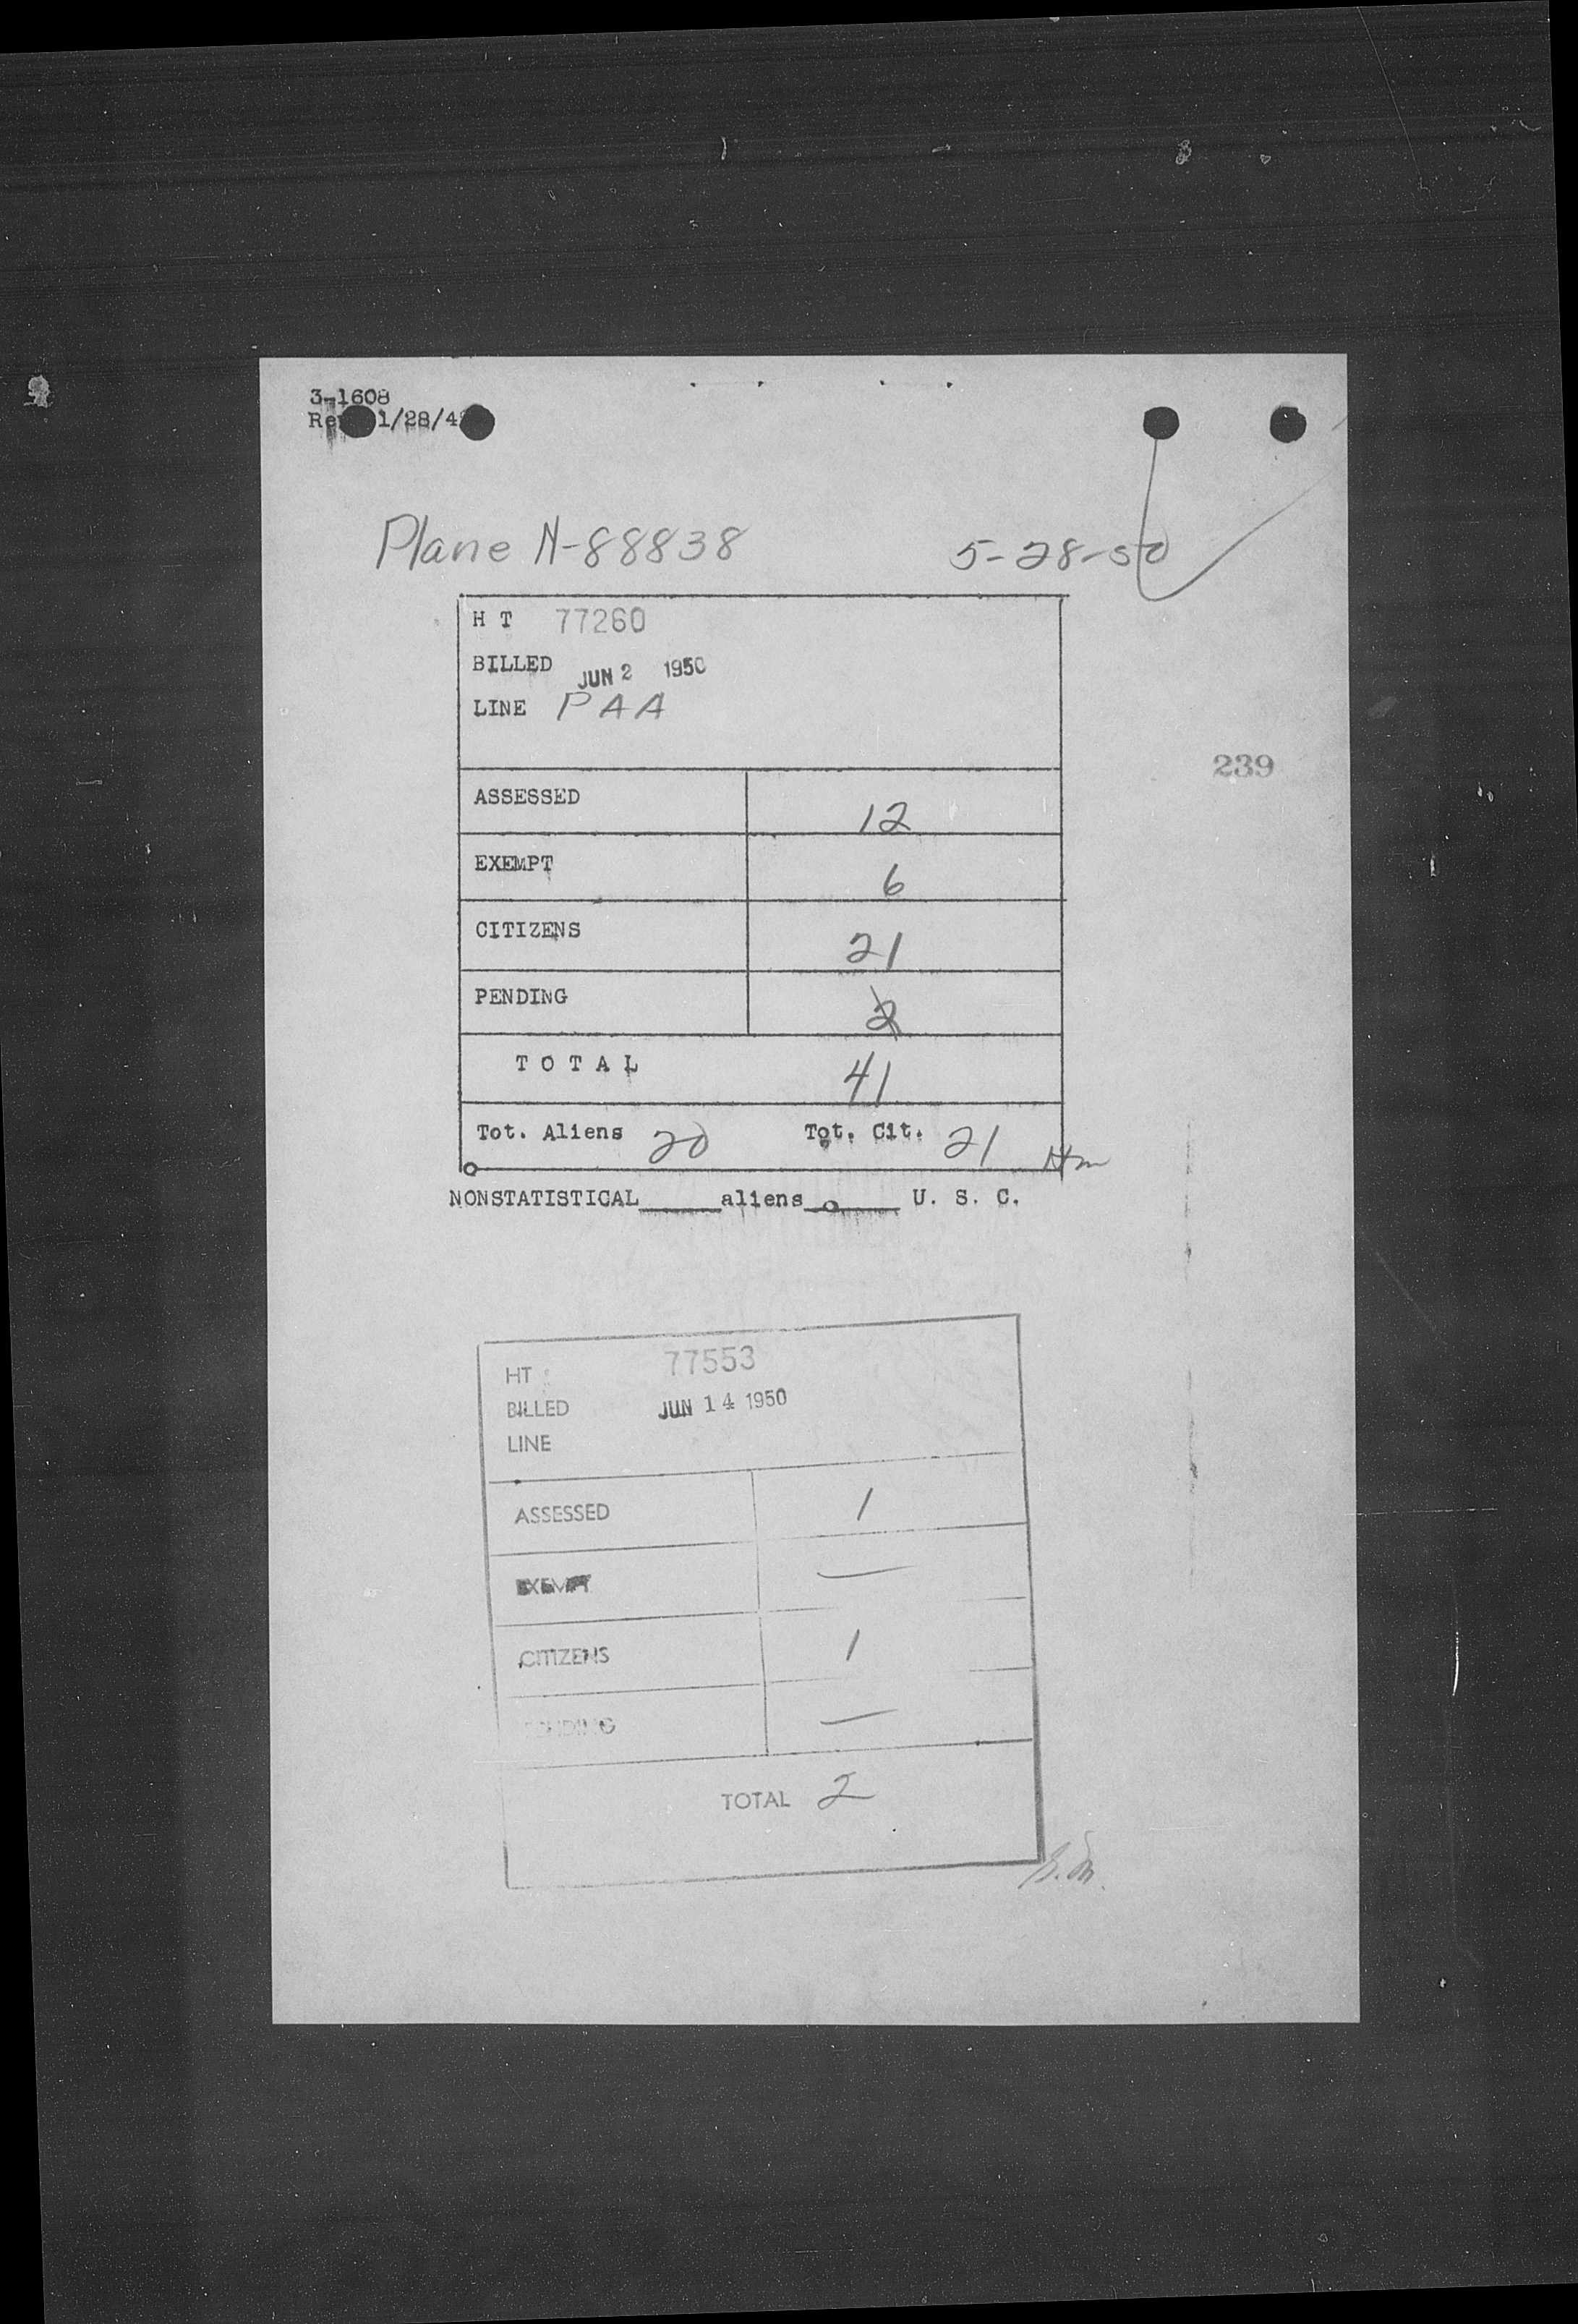 3-1608
1/28/4
Plane N-88838 5-28-50
H T 77260
BILLED JUN 2 1950
LINE PAA
239
ASSESSED 12
EXEMPT 6
CITIZENS 21
PENDING 2
TOTAL 41
Tot. Aliens 20 Tot. Cit. 21
NONSTATISTICAL_____aliens_____ U. S. C.
HT 77553
BILLED JUN 14 1950
LINE
ASSESSED 1
EXEMPT —
CITIZENS 1
PENDING —
TOTAL 2